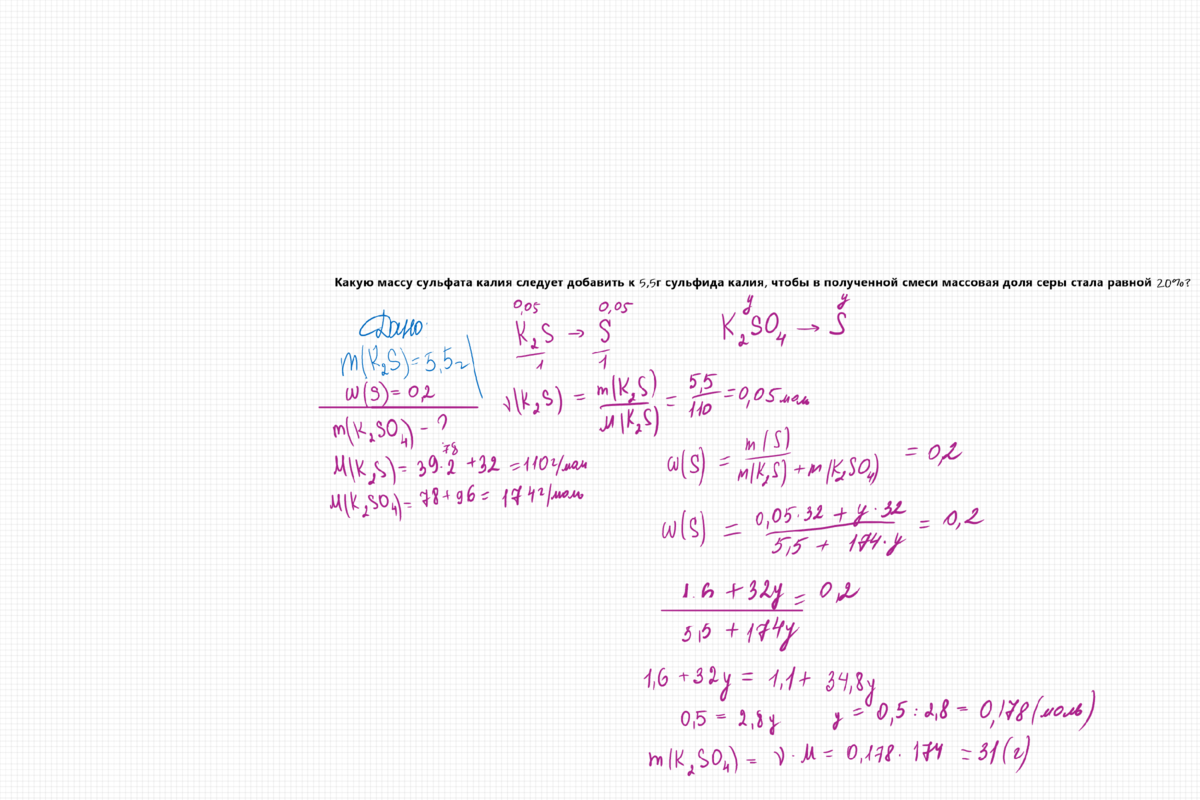 Какую массу сульфата калия следует добавить к 5,5г сульфида калия, чтобы в полученной смеси массовая доля серы стала равной 20%?
Дано:
m(K₂S)=5,5г
ω(S)=0,2
m(K₂SO₄) - ?
78
M(K₂S)= 39·2 +32 =110г/моль
M(K₂SO₄)= 78+96= 174г/моль
0,05 0,05
K₂S → S
1 1
y y
K₂SO₄ → S
ν(K₂S) = m(K₂S)/M(K₂S) = 5,5/110 =0,05моль
ω(S) = m(S)/m(K₂S)+m(K₂SO₄) = 0,2
ω(S) = 0,05·32 + y·32/5,5 + 174·y = 0,2
1.6 +32y/5,5 +174y = 0,2
1,6 +32y = 1,1+ 34,8y
0,5 = 2,8y y = 0,5 : 2,8 = 0,178 (моль)
m(K₂SO₄) = ν·M = 0,178·174 = 31(г)